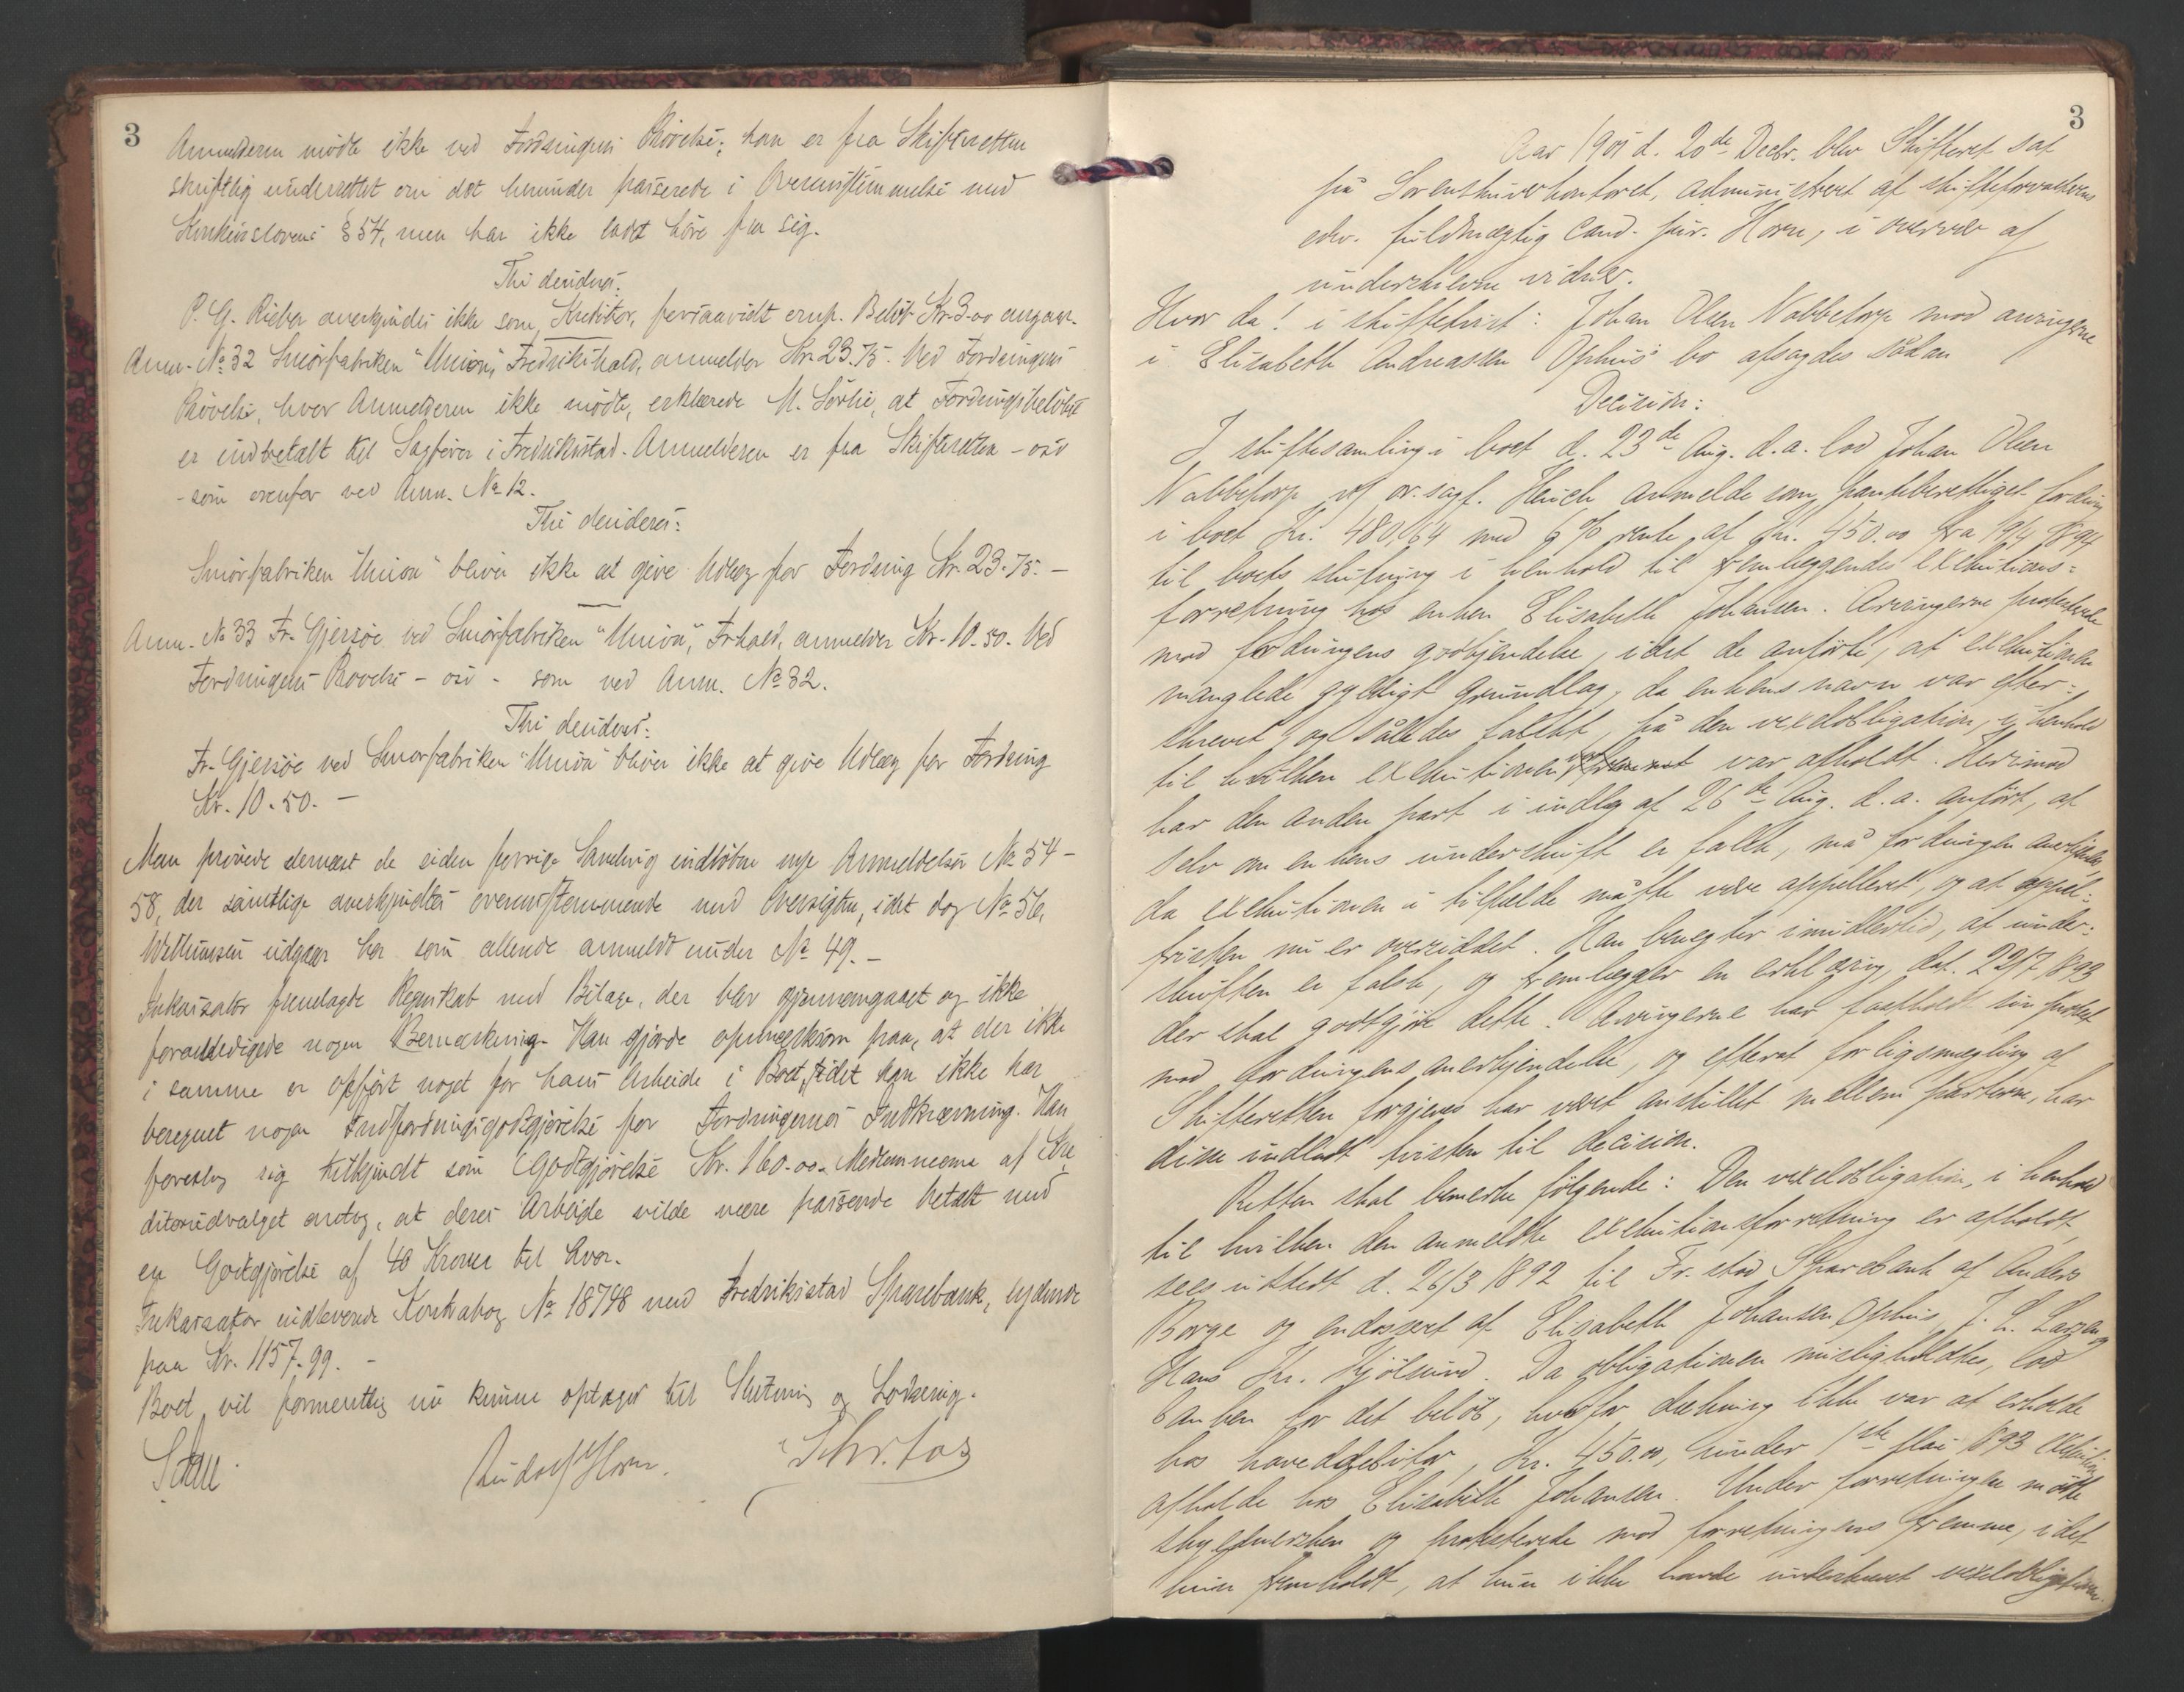 3
Anmelderen mödte ikke ved Fordringens Prövelse; han er fra Skifteretten
skriftlig underrettet om det herunder passerede i Overensstemmelse med
Konkurslovens § 54, men har ikke ladet höre fra sig.
Thi decideres:
P. G. Rieber anerkjendes ikke som Kreditor, forsaavidt Beløb Kr. 3.00 angaar.
Anm. No 32 Smörfabriken "Union", Fredrikshald, anmelder Kr. 23.75. Ved Fordringens
Prövelse, hvor Anmelderen ikke mödte, erklærede M. Sörlie, at Fordringsbelöbet
er indbetalt til Sagförer i Fredrikstad. Anmelderen er fra Skifteretten - osv
- som ovenfor ved Anm. No 12.
Thi decideres:
Smörfabriken "Union" bliver ikke at give Udlæg for Fordring Kr. 23.75. -
Anm. No 33 Fr. Gjersöe ved Smörfabriken "Union", Frhald, anmelder Kr. 10.50. Ved
Fordringens Prövelse - osv - som ved Anm. No 32.
Thi decideres:
Fr. Gjersöe ved Smörfabriken "Union" bliver ikke at give Udlæg for Fordring
Kr. 10.50. -
Man prövede dernæst de siden forrige Samling indlöbne nye Anmeldelser No 54 -
58, der samtlige anerkjendtes overensstemmende med Oversigten, idet dog No 56,
udgaar her som allerede anmeldt under No 49. -
Inkassator fremlagde Regnskab med Bilage, der blev gjennemgaaet og ikke
foranledigede nogen Bemærkning. Han gjorde opmærksom paa, at der ikke
i samme er opfört noget for hans Arbeide i Boet, idet han ikke har
beregnet nogen Indfordringsgodtgjörelse for Fordringernes Indkrævning. Han
foreslog sig tilkjendt som Godtgjörelse Kr. 160.00. Medlemmerne af Kre
ditorudvalget antog, at deres Arbeide vilde være passende betalt med
en Godtgjörelse af 40 Kroner til hver.
Inkassator indleverede Kontrabog No 18798 med Fredrikstad Sparebank, lydende
paa Kr. 1157.99. -
Boet vil formentlig nu kunne optages til Slutning og Lodning.
Rudolf Horn.
3
Aar 1901 d. 20de Decbr. blev Skifteret sat
på Sorenskriverkontoret, administreret af skifteforvalterens
edsv. fuldmægtig cand. jur. Horn, i overvær af
underskrevne vidner.
Hvor da! i skiftetvist: Johan Olsen Nabbetorp mod arvingerne
i Elisabeth Andreassen Ophus' bo afsagdes sådan
Decision:
I skiftesamling i boet d. 23de Aug. d.a. lod Johan Olsen
Nabbetorp ved or.sagf. Heuch anmelde som panteberettiget fordring
i boet Kr. 480,64 med 6 % rente af Kr. 450.00 fra 19/4 1894
til boets slutning i henhold til fremlæggendes exekutions=
forretning hos enken Elisabeth Johansen. Arvingerne protesterede
mod fordringens godkjendelse, idet de anförte, at exekutionen
manglede gyldigt grundlag, da enkens navn var efter=
skrevet og således falskt, på den vexelobligation, i henhold
til hvilken exekutionen var afholdt. Herimod
har den anden part i indlæg af 26de Aug. d.a. anfört, at
selv om enkens underskrift er falsk, må fordringen anerkjendes
da exekutionen i tilfælde måtte være appelleret, og at appel=
fristen nu er oversiddet. Han benegter imidlertid, at under=
skriften er falsk, og fremlægger en erklæring dat. 22/7 1893
der skal godtgjöre dette. Arvingerne har fastholdt sin protest
mod fordringens anerkjendelse, og efterat forligsmægling af
Skifteretten forgjeves har været anstillet mellem parterne, har
disse indladt tvisten til decision.
Retten skal bemerke fölgende: Den vexelobligation, i henhold
til hvilken den anmeldte exekutionsforretning er afholdt,
sees utstedt d. 26/3 1892 til Fr.stad Sparebank af Anders
Borge og endosseret af Elisabeth Johansen Ophus, J. L. Larsen og
Hans Kr. Kjölsund. Da obligationen misligholdtes, lod
banken for det belöb, hvorfor dækning ikke var at erholde
hos hoveddebitor, Kr. 450.00, under 1ste Mai 1893 exekution
afholde hos Elisabeth Johansen. Under forretningen mötte
skyldnersken og protesterede mod forretningens fremme, idet
hun fremholdt, at hun ikke havde underskrevet vexelobligationen.